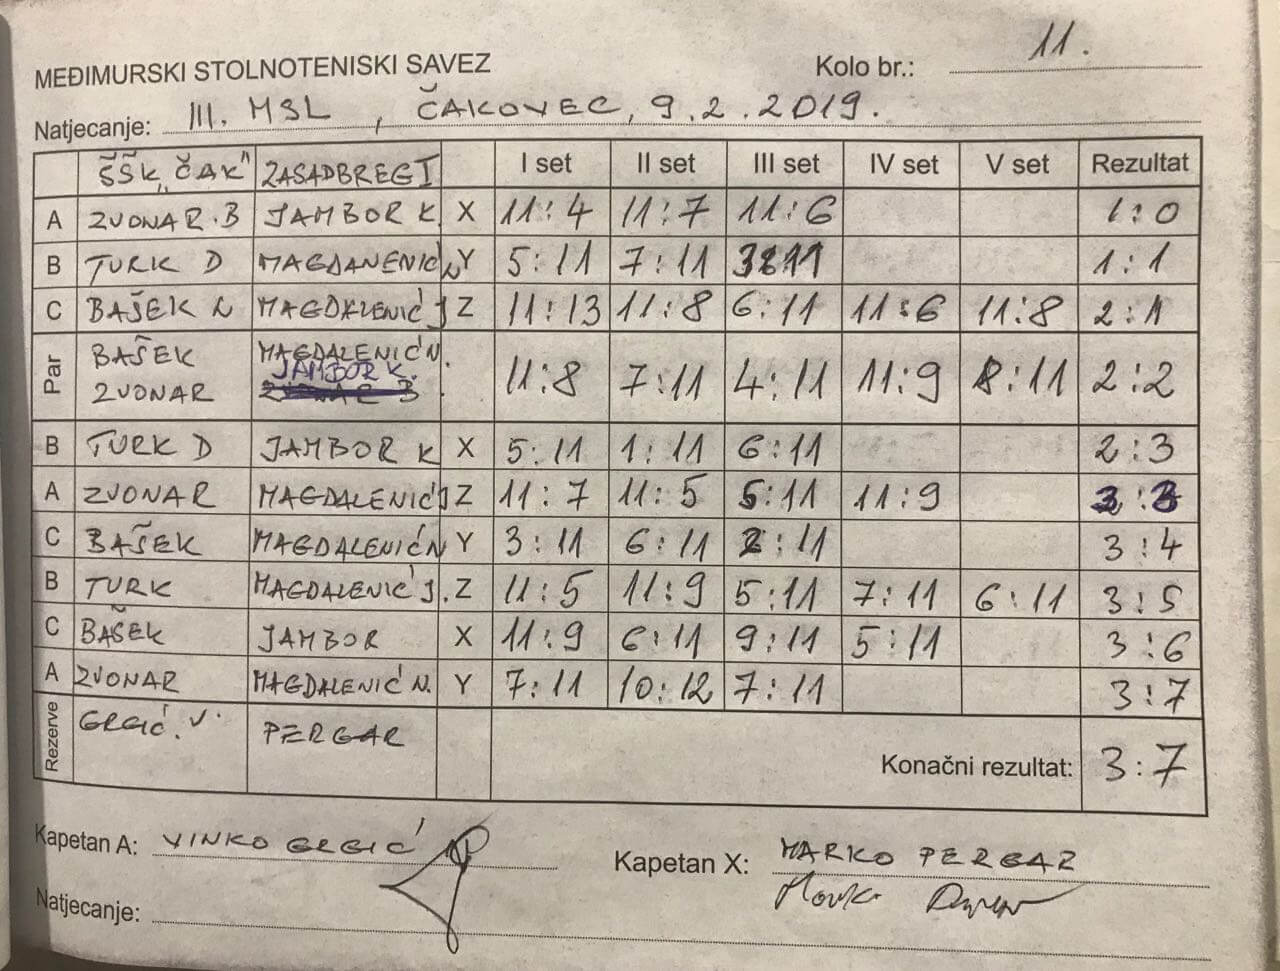 MEĐIMURSKI STOLNOTENISKI SAVEZ
Kolo br.: 11.
Natjecanje: III. MSL, ČAKOVEC, 9.2.2019.
ŠŠK „ČAK" ZASADBREG I I set II set III set IV set V set Rezultat
A ZVONAR.B JAMBOR K. X 11:4 11:7 11:6 1:0
B TURK D MAGDANENIĆ N Y 5:11 7:11 3:11 1:1
C BAŠEK N MAGDALENIĆ J Z 11:13 11:8 6:11 11:6 11:8 2:1
Par BAŠEK MAGDALENIĆ N. 11:8 7:11 4:11 11:9 8:11 2:2
ZVONAR JAMBOR K.
B TURK D JAMBOR K X 5:11 1:11 6:11 2:3
A ZVONAR MAGDALENIĆ J Z 11:7 11:5 5:11 11:9 3:3
C BAŠEK MAGDALENIĆ N Y 3:11 6:11 2:11 3:4
B TURK MAGDALENIĆ J. Z 11:5 11:9 5:11 7:11 6:11 3:5
C BAŠEK JAMBOR X 11:9 6:11 9:11 5:11 3:6
A ZVONAR MAGDALENIĆ N. Y 7:11 10:12 7:11 3:7
Rezerve GRGIĆ. V. PERGAR Konačni rezultat: 3:7
Kapetan A: VINKO GRGIĆ
Kapetan X: MARKO PERGAR
Natjecanje: